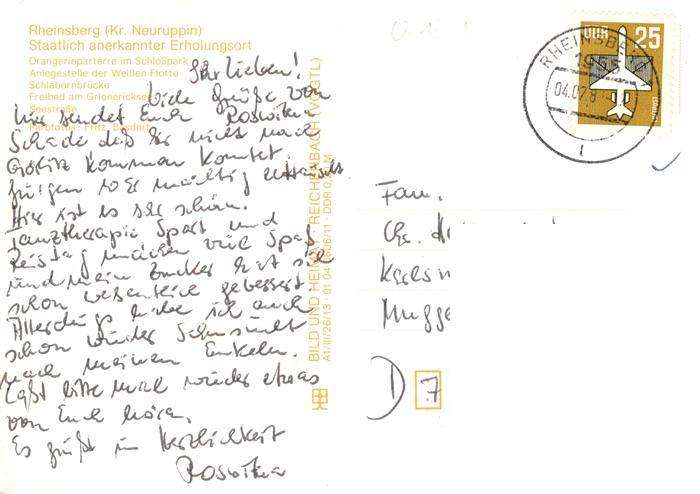 Rheinsberg (Kr. Neuruppin)
Staatlich anerkannter Erholungsort
Orangerieparterre im Schloßpark
Anlegestelle der Weißen Flotte
Schlabornbrücke
Freibad am Grienericksee
Seestraße
Farbfotos: Fritz
Ihr Lieben!
Viele Grüße von
hier sendet Euch Roswitha
Schade daß Ihr nicht nach
Görlitz kommen konntet.
Jürgen war mächtig enttäuscht
Hier ist es sehr schön.
Tanztherapie Sport und
machen viel Spaß
und mein Zucker hat sich
schon wesentlich gebessert.
Allerdings habe ich auch
schon wieder Sehnsucht
nach meinen Enkeln.
Laßt bitte mal wieder etwas
von Euch hören.
Es grüßt in Herzlichkeit
Roswitha
BILD UND HEIMAT REICHENBACH (VOGTL)
A1/III/26/13 01 04 DDR M
DDR 25
RHEINSBERG
1955
04.07.8
Fam.
Ch.
Karlsr
Mugge
D 7